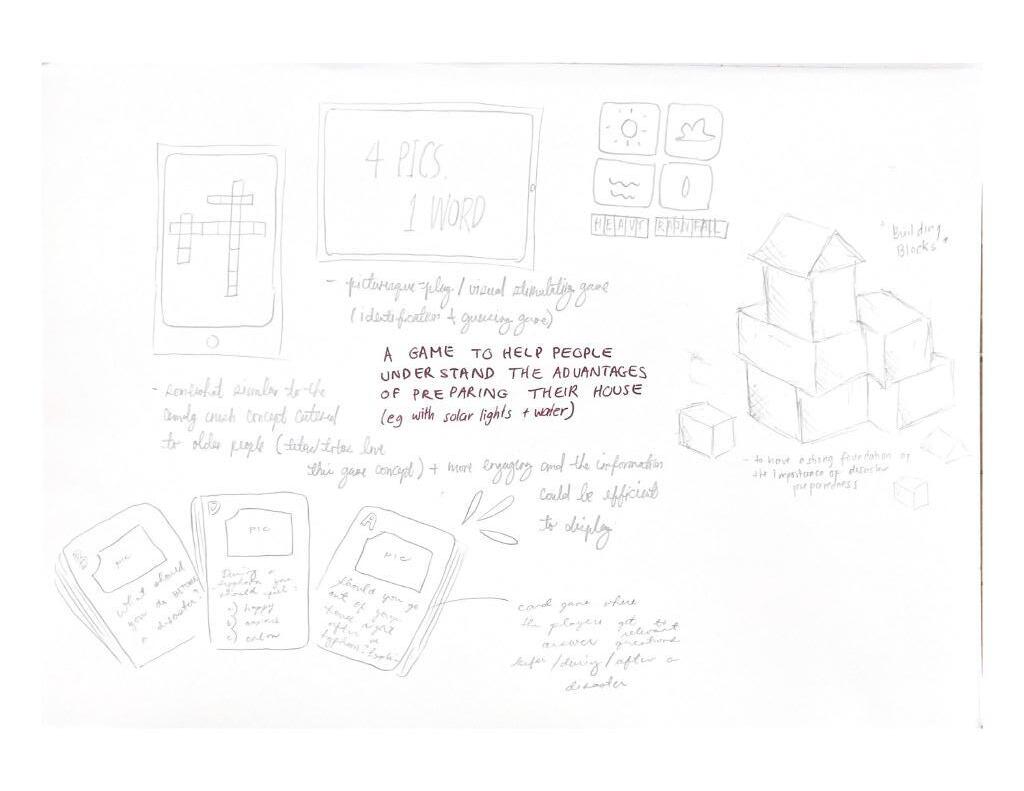 4 PICS.
1 WORD
HEAVY RAINFALL
"Building
Blocks"
- picturesque-play / visual stimulating game
(identification + guessing game)
A GAME TO HELP PEOPLE
UNDERSTAND THE ADVANTAGES
OF PREPARING THEIR HOUSE
(eg with solar lights + water)
- somewhat similar to the
candy crush concept catered
to older people (titas/titos love
this game concept) + more engaging and the information
could be efficient
to display
- to have a strong foundation of
the importance of disaster
preparedness
B
PIC
What should
you do BEFORE
a disaster?
D
PIC
During a
typhoon you
should feel:
a) happy
b) anxious
c) calm
A
PIC
Should you go
out of your
house right
after a
typhoon? Explain
card game where
the players get to
answer relevant
questions
before/during/after a
disaster